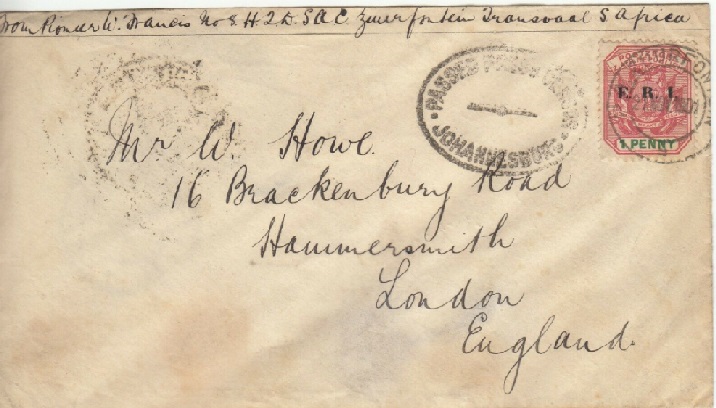 From Pioneer W. Francis No 8 H. 2 D. S A C Zuurfontein Transvaal S Africa
PASSED PRESS CENSOR
JOHANNESBURG
E. R. I.
1 PENNY
Mr W. Howe.
16 Brackenbury Road
Hammersmith
London
England.